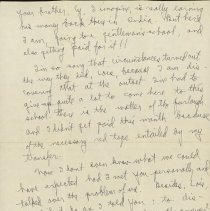 your brother by. I imagine is really earning
his money back there in India. And here
I am, going to a gentlemen's school, and
also getting paid for it!!
I'm so sorry that circumstances turned out
the way they did, Lois, because I am dis-
covering that at the outset I've had to
give up quite a lot to come here to this
school. There is the matter of the furlough
and I didn't get paid this month because
of the necessary red tape entailed by my
transfer.
Now I don't even know what we could
have expected had I met you personally and
talked over the problem of us. Besides, Lois,
I told you, to dis-